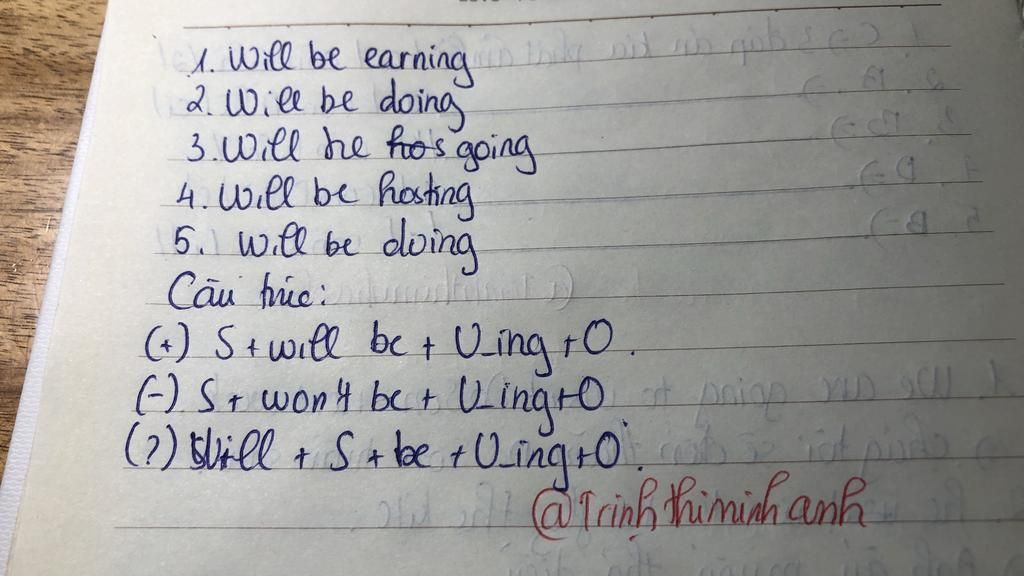 1. Will be earning
2. Will be doing
3. Will be going
4. Will be hosting
5. Will be doing
Cấu trúc:
(+) S + will be + V_ing + O.
(-) S + won't be + V_ing + O
(?) Will + S + be + V_ing + O.
@Trinhthiminhanh